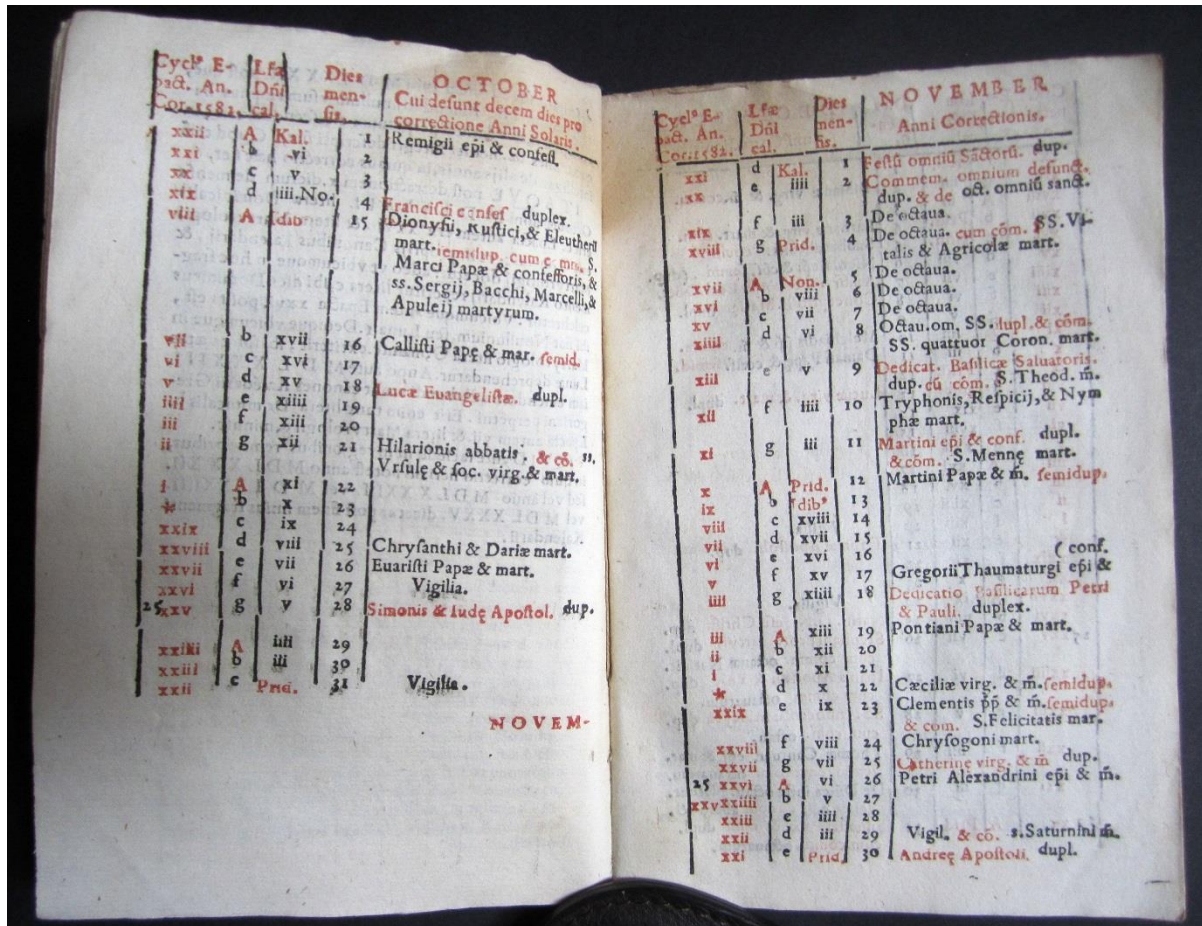 Cyclˢ E- Lræ Dies OCTOBER
pact. An. Dñi men- Cui desunt decem dies pro
Cor.1582. cal. sis. correctione Anni Solaris.
xxii A Kal. 1 Remigii epĩ & confess.
xxi b vi 2
xx c v 3
xix d iiii.No. 4 Francisci confes duplex.
viii A Idib 15 Dionysii, Rustici, & Eleutherii
mart. semidup. cum com. S.
Marci Papæ & confessoris, &
ss.Sergij, Bacchi, Marcelli, &
Apuleij martyrum.
vii b xvii 16 Callisti Papę & mar. semid.
vi c xvi 17
v d xv 18 Lucæ Euangelistæ. dupl.
iiii e xiiii 19
iii f xiii 20
ii g xii 21 Hilarionis abbatis. & cõ. ss.
Vrsulę & soc. virg. & mart.
i A xi 22
* b x 23
xxix c ix 24
xxviii d viii 25 Chrysanthi & Dariæ mart.
xxvii e vii 26 Euaristi Papæ & mart.
xxvi f vi 27 Vigilia.
25 xxv g v 28 Simonis & Iudę Apostol. dup.
xxiiii A iiii 29
xxiii b iii 30
xxii c Prid. 31 Vigilia.
NOVEM-
Cyclˢ E- Lræ Dies NOVEMBER
pact. An. Dñi men- Anni Correctionis.
Cor.1582. cal. sis.
xxi d Kal. 1 Festũ omniũ Sãctorũ. dup.
xx e iiii 2 Commem. omnium defunct.
dup. & de oct. omniũ sanct.
xix f iii 3 De octaua.
xviii g Prid. 4 De octaua. cum cõm. SS. Vi-
talis & Agricolæ mart.
xvii A Non. 5 De octaua.
xvi b viii 6 De octaua.
xv c vii 7 De octaua.
xiiii d vi 8 Octau.om. SS. dupl. & cõm.
SS. quattuor Coron. mart.
xiii e v 9 Dedicat. Basilicæ Saluatoris.
dup. cũ cõm. S.Theod. m̃.
xii f iiii 10 Tryphonis, Respicij, & Nym
phæ mart.
xi g iii 11 Martini epĩ & conf. dupl.
& cõm. S.Mennę mart.
x A Prid. 12 Martini Papæ & m̃. semidup.
ix b Idib⁹ 13
viii c xviii 14
vii d xvii 15
vi e xvi 16 (conf.
v f xv 17 Gregorii Thaumaturgi epĩ &
iiii g xiiii 18 Dedicatio Basilicarum Petri
& Pauli. duplex.
iii A xiii 19 Pontiani Papæ & mart.
ii b xii 20
i c xi 21
* d x 22 Cæciliæ virg. & m̃. semidup.
xxix e ix 23 Clementis p̃p̃ & m̃. semidup.
& com. S.Felicitatis mar.
xxviii f viii 24 Chrysogoni mart.
xxvii g vii 25 Catherinę virg. & m̃ dup.
25 xxvi A vi 26 Petri Alexandrini epĩ & m̃.
xxvxxiiii b v 27
xxiii c iiii 28
xxii d iii 29 Vigil. & cõ. s.Saturnini m̃.
xxi e Prid. 30 Andreę Apostoli. dupl.